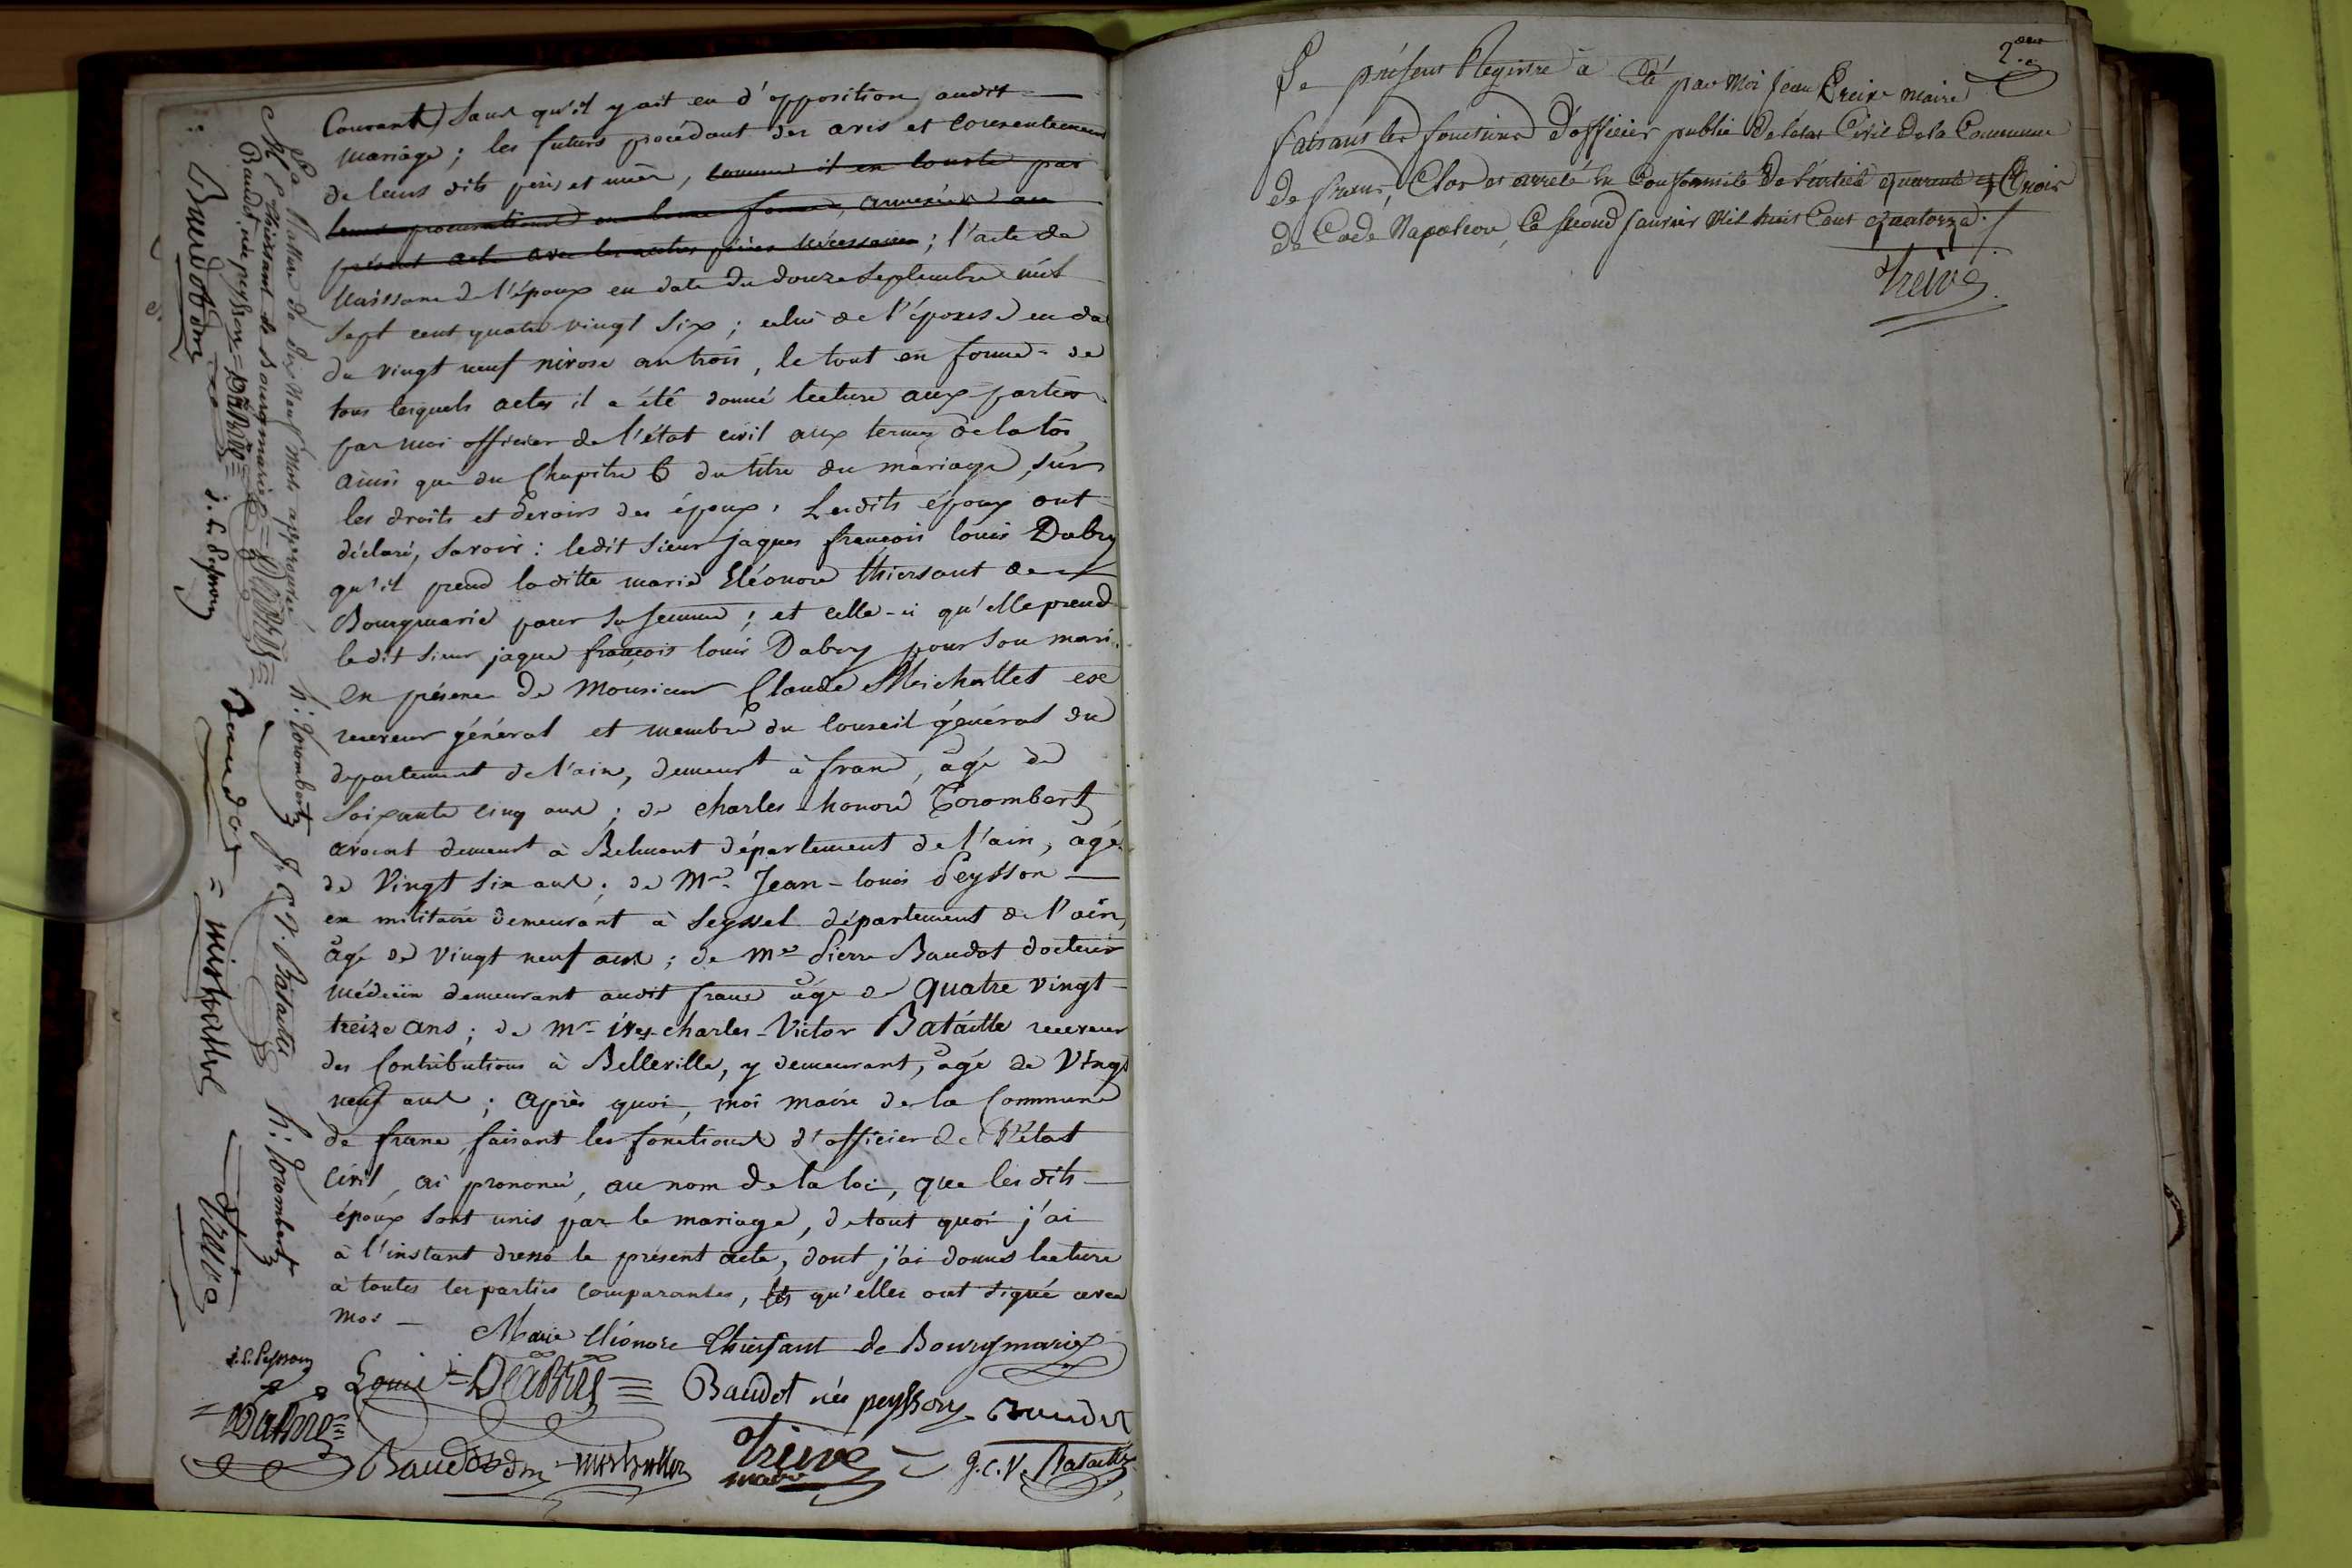 Courant) sans qu'il y ait eu d'opposition audit
mariage ; les futurs procédant des avis et consentement
de leurs dits père et mère, comme il en conste par
leurs procurations en bonne forme, annexées au
présent acte avec les autres pièces nécessaires ; l'acte de
naissance de l'époux en date du douze septembre mil
sept cent quatre vingt six ; celui de l'épouse en da
du vingt neuf nivose an trois, le tout en forme - de
tous lesquels actes il a été donné lecture aux parties
par moi officier de l'état civil aux termes de la loi
ainsi que du Chapitre 6 du titre du mariage, sur
les droits et devoirs des époux. Lesdits époux ont
déclaré, savoir : ledit sieur jaques françois louis Dabry
qu'il prend laditte marie Eléonore thiersant de
Bourgmarie pour sa femme ; et celle-ci qu'elle prend
ledit sieur jaque françois louis Dabry pour son mari.
en présence de Monsieur Claude Michallet ex
receveur général et membre du Conseil général du
departement de l'ain, demeurt à frans, âgé de
soixante cinq ans ; de charles-honoré Torombert
avocat demeurt à Belmont département de l'ain, agé
de vingt six ans ; de Mr Jean-louis Peysson
ex militaire demeurant à Seyssel département de l'ain,
âgé de vingt neuf ans ; de Mr Pierre Baudot docteur
médecin demeurant audit frans âgé de quatre vingt
treize ans ; de Mr ives-charles-Victor Bataille receveur
des Contributions à Belleville, y demeurant, âgé de vingt
neuf ans ; après quoi, moi maire de la Commune
de frans, faisant les fonctions d'officier de l'état
civil, ai prononcé, au nom de la loi, que les dits
époux sont unis par le mariage, de tout quoi j'ai
à l'instant dressé le présent acte, dont j'ai donné lecture
à toutes les parties comparantes, qu'elles ont signé avec
moi -
Marie Eléonore Thiersant de Bourgmarie
J. L. Peysson
Louis Dabry Baudot née peysson Baudot
Dabry
Baudot dm Michallet Treive maire J. C. V. Bataille
La Rature de dix Neuf Mots approuvée h: Torombert J. C. V. Bataille h: Torombert
M E thiersant de Bourgmarie
Baudot née peysson
Baudot dm J. L. Peysson Baudot Michallet Treive
2.e
Le présent Registre a été par Moi Jean Treive maire
faisant les fonctions d'officier public de l'etat Civil de la Commune
de frans, Clos et arreté en Conformité de l'article quarante et trois
du Code Napoleon, Ce second Janvier Mil huit Cent quatorze
Treive